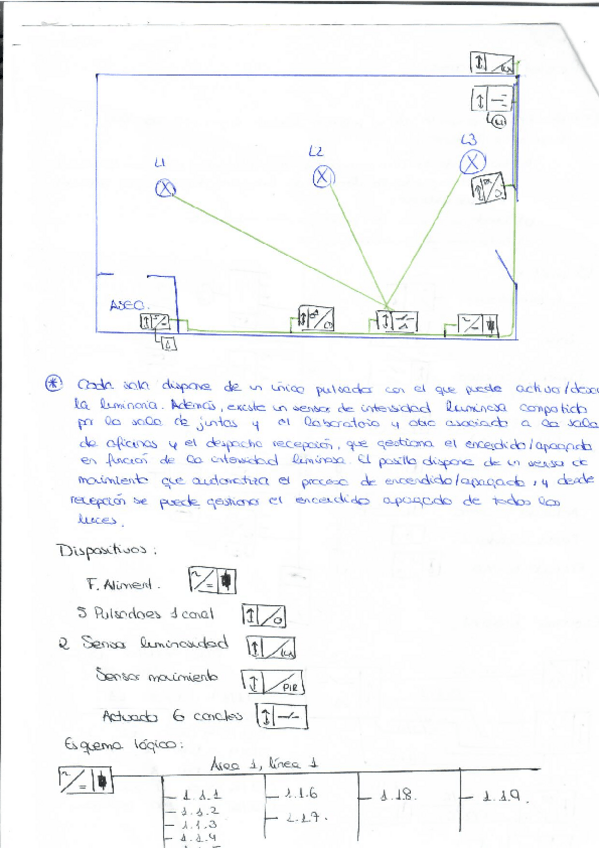 L1
L2
L3
ASEO.
* Cada sala dispone de un único pulsador con el que puede activa/desa
la luminaria. Además, existe un sensor de intensidad luminosa compatido
por la sala de juntas y el laboratorio y otro asociado a la sala
de oficinas y el despacho recepción, que gestiona el encendido/apagado
en función de la intensidad luminosa. El pasillo dispone de un sensor de
movimiento que automatiza el proceso de encendido/apagado, y desde
recepción se puede gestionar el encendido apagado de todas las
luces.
Dispositivos:
F. Aliment.
5 Pulsadores 1 canal
2 Sensor luminosidad
Sensor movimiento
PIR
Actuador 6 canales
Esquema lógico:
Área 1, línea 1
1.1.1
1.1.2
1.1.3
1.1.4
1.1.6
1.1.7.
1.1.8.
1.1.9.